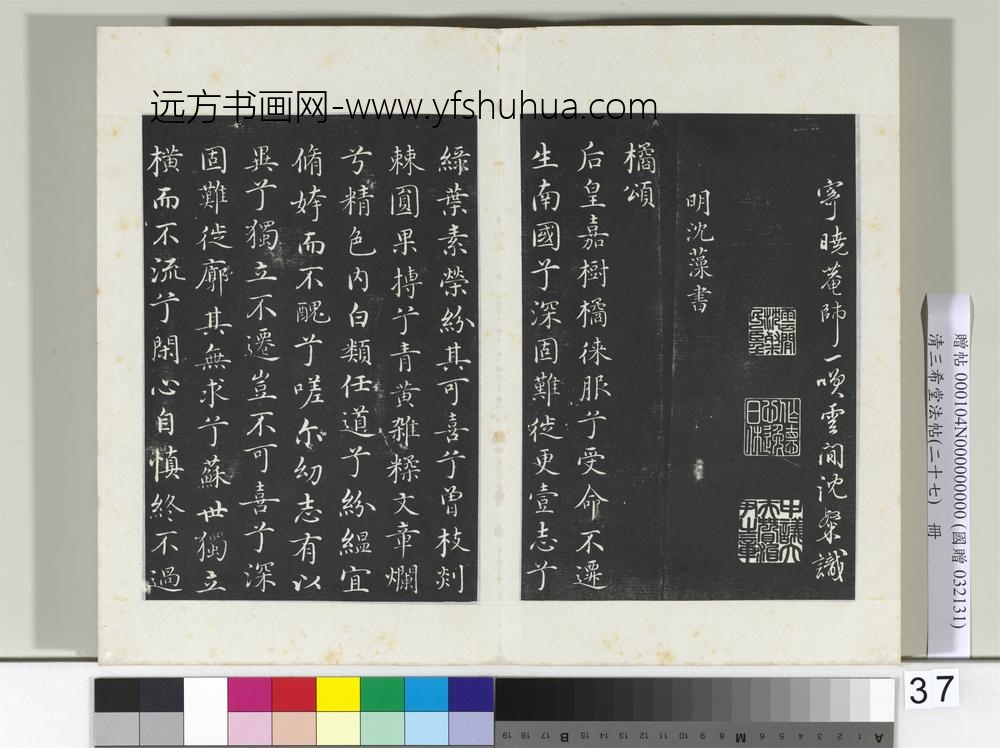 远方书画网-www.yfshuhua.com
寧曉菴師一噗雲間沈粲識
明沈藻書
橘頌
后皇嘉樹橘徠服兮受命不遷
生南國兮深固難徙更壹志兮
綠葉素榮紛其可喜兮曾枝剡
棘圓果摶兮青黃雜糅文章爛
兮精色內白類任道兮紛緼宜
脩姱而不醜兮嗟尔幼志有以
異兮獨立不遷豈不可喜兮深
固難徙廓其無求兮蘇世獨立
橫而不流兮閑心自慎終不過
贈帖 000104N000000000 (國贈 032131)
清三希堂法帖(二十七) 冊
37